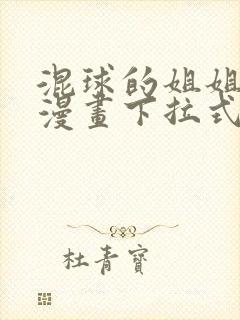 混球的姐姐
漫畫下拉式
杜青寶